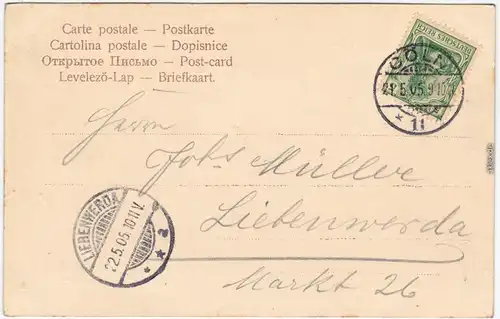 Carte postale — Postkarte
Cartolina postale — Dopisnice
Открытое Письмо — Post-card
Levelező-Lap — Briefkaart.
DEUTSCHES REICH
CÖLN
21.5.05.9-10
* 11
Herrn
Jobs Müller
Liebenwerda
Markt 26
LIEBENWERDA
22.5.05.10-11V.
* * a